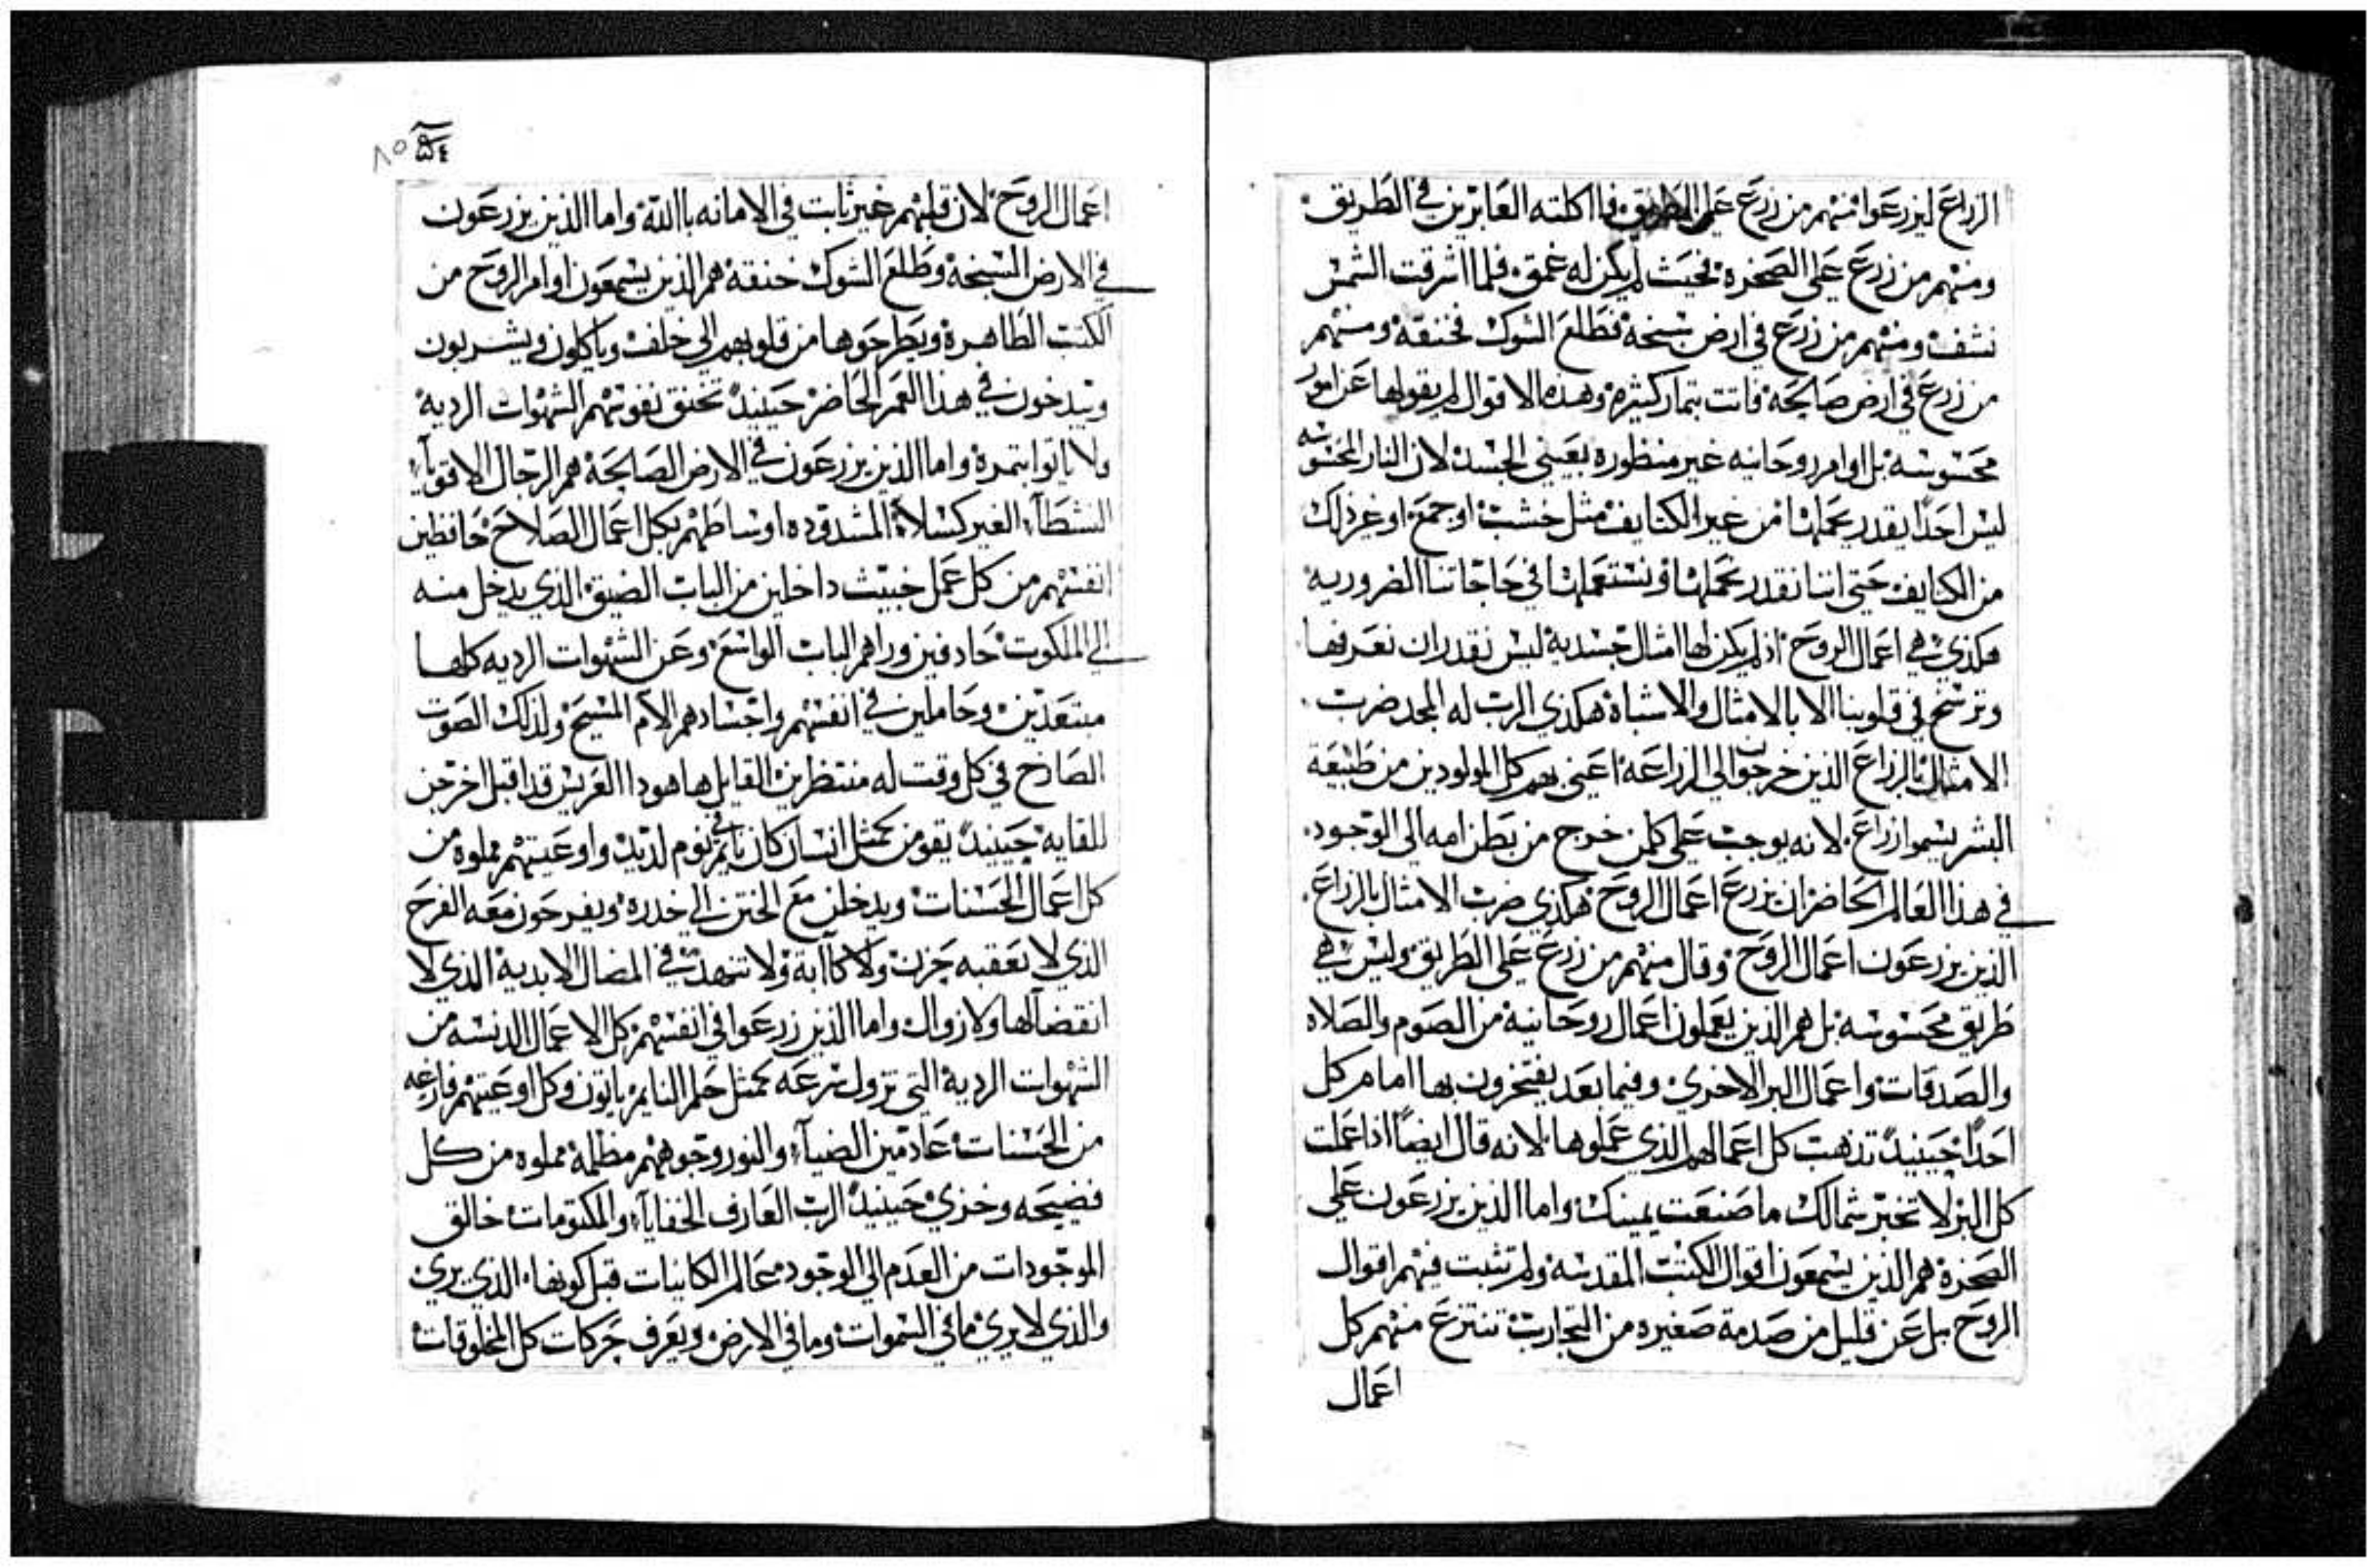 الزراع ليزرعوا منهم من زرع على الطريق فااكلته العابرين في الطريق
ومنهم من زرع على الصخره بحيث لم يكن له عمق فلما اشرقت الشمس
نشف ومنهم من زرع في ارض سبخة فطلع الشوك فخنقه ومنهم
من زرع في ارض صالحه فاتت بتمار كثيره وهذه الاقوال لم يقولها عن امور
محسوسه بل اوامر روحانيه غير منظوره بعيني الجسد لان النار المحسوسه
ليس احدًا يقدر يحملها من غير الكتايف مثل خشب او جمع او غير ذلك
من الكتايف حتى اننا نقدر نحملها ونستعملها في حاجاتنا الضروريه
هكذي هي اعمال الروح اذ لم يكن لها امثال جسدية ليس نقدر ان نعرفها
وترسخ في قلوبنا الا بالامثال والاشباه هكذي الرب له المجد ضرب
الامثال بالزراع الذين خرجوا الي الزراعه اعني بهم كل المولودين من طبيعة
البشر يسموا زراع لانه يوجب على كلمن خرج من بطن امه الى الوجود
في هذا العالم الحاضر ان يزرع اعمال الروح هكذي ضرب الامثال بالزراع
الذين يزرعون اعمال الروح وقال منهم من زرع على الطريق وليس هي
طريق محسوسه بل هم الذين يعملون اعمال روحانية من الصوم والصلاه
والصدقات واعمال البر الاخرى وفيما بعد يفتخرون بها امام كل
احدًا حينيدً تذهب كل اعمالهم الذي عملوها لانه قال ايضًا اذا عملت
كل البر لا تخبر شمالك ما صنعت يمينك واما الذين يزرعون على
الصخرة هم الذين يسمعون اقوال الكتب المقدسه ولم تثبت فيهم اقوال
الروح بل عن قليل من صدمة صغيره من التجارب تنتزع منهم كل
اعمال
٨٥ ٥٤
اعمال الروح لان قلبهم غير ثابت في الامانه باالله واما الذين يزرعون
في الارض السبخة وطلع الشوك خنقه هم الذين يسمعون اوامر الروح من
الكتب الطاهرة ويطرحوها من قلوبهم الى خلف وياكلون ويشربون
ويبدخون في هذا العمر الحاضر حينيدً تخنق نفوسهم الشهوات الرديه
ولا ياتوا بتمرة واما الذين يزرعون في الارض الصالحة هم الرجال الاقويآء
النشطآء الغير كسلاء المشدوده اوساطهم بكل اعمال الصلاح حافظين
انفسهم من كل عمل خبيث داخلين من الباب الضيق الذي يدخل منه
الي الملكوت حادفين وراهم الباب الواسع وعن الشهوات الرديه كلها
مبتعدين وحاملين في انفسهم واجسادهم الام المسيح ولذلك الصوت
الصارخ في كل وقت له منتظرين القايل ها هودا العريس قد اقبل اخرجن
للقايه حينيدً يقومن كمثل انسان كان نايم في نوم لديد واوعيتهم مملوه من
كل اعمال الحسنات ويدخلن مع الختن الي خدره ويفرحون معه الفرح
الذي لا يعقبه حزن ولا كاابة ولا تنهد في المضال الابدية الذي لا
انقضآ لها ولا زوال واما الذين زرعوا في انفسهم كل الاعمال الدنسه من
الشهوات الردية التي تزول بسرعه كمثل حلم النايم ياتون وكل اوعيتهم فارغه
من الحسنات عادمين الضيآء والنور وجوههم مظلمة مملوه من كل
فضيحه وخزي حينيدً الرب العارف الخفايآء والمكتومات خالق
الموجودات من العدم الي الوجود عالم الكاينات قبل كونها الذي يرى
والذي لا يرى ما في السموات وما في الارض ويعرف حركات كل المخلوقات